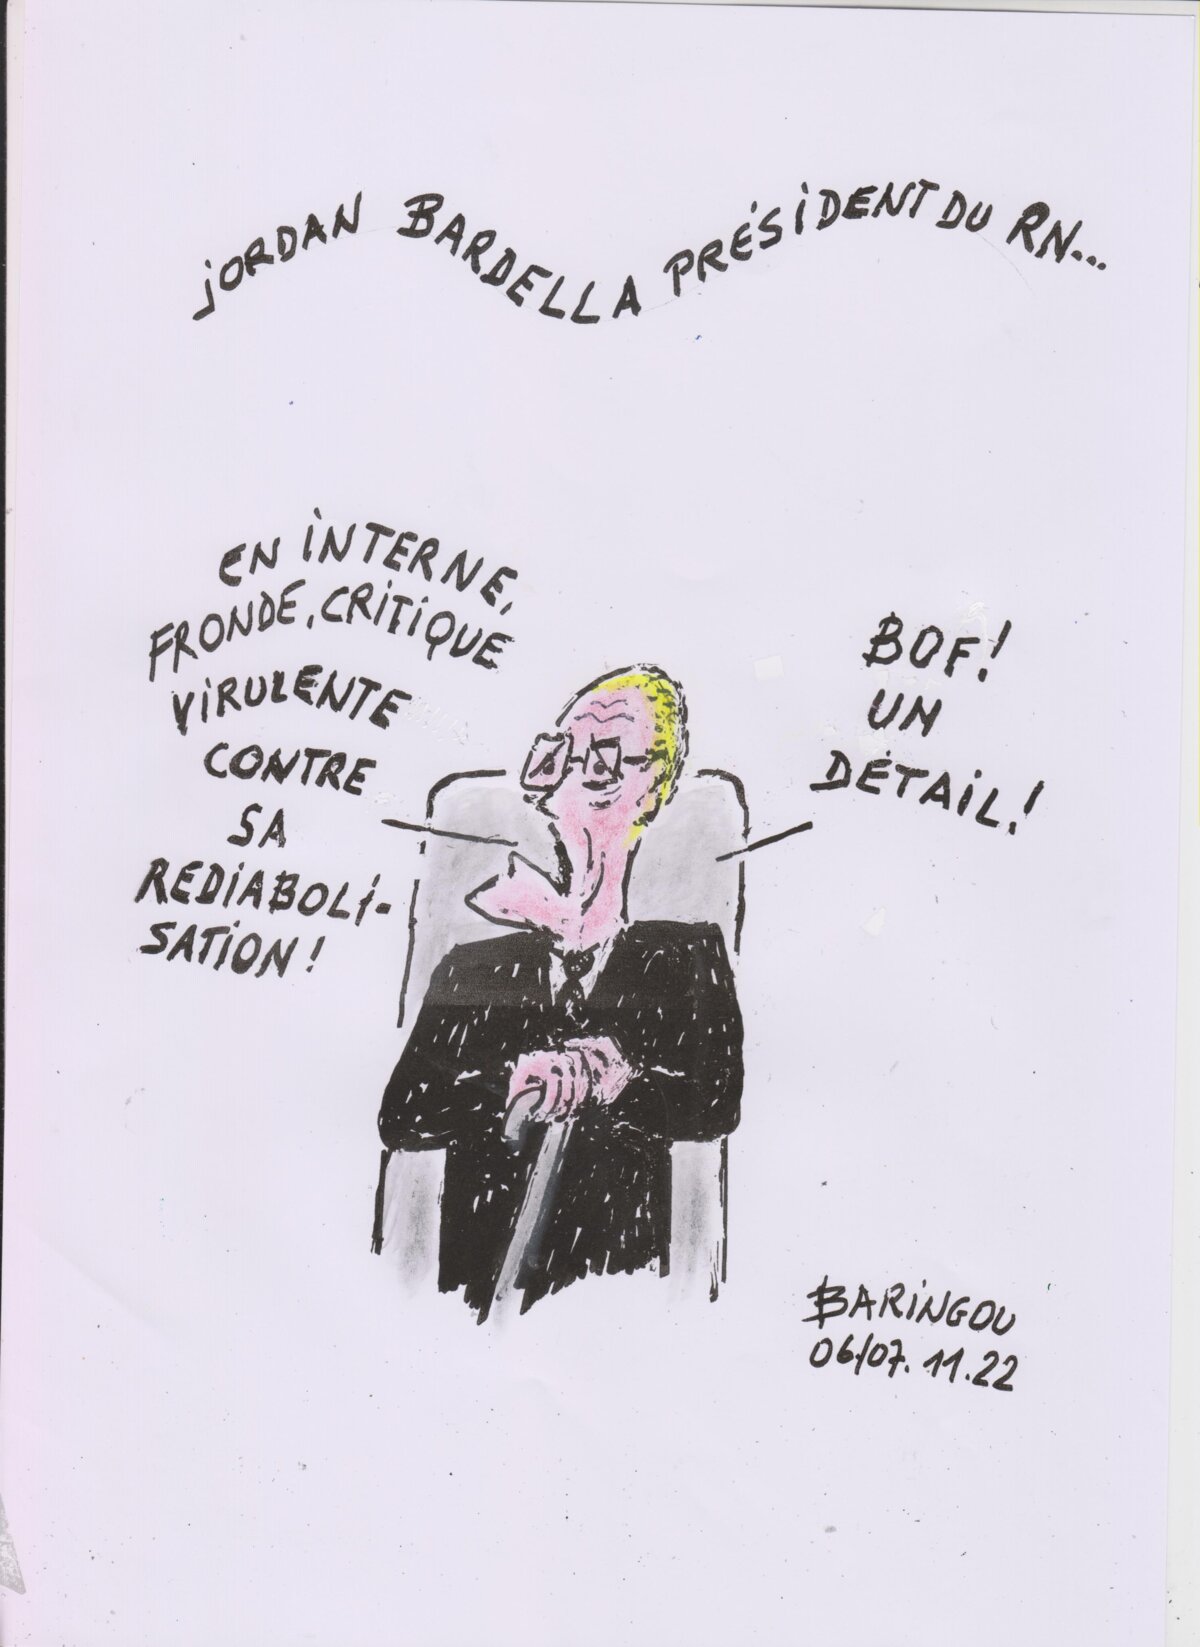 jORDAN BARDELLA PRÉSiDENT DU RN...
EN iNTERNE,
FRONDE, CRiTiQUE
ViRULENTE
CONTRE
SA
REDiABOLi-
SATiON!
BOF!
UN
DÉTAiL!
BARiNGOU
06/07.11.22